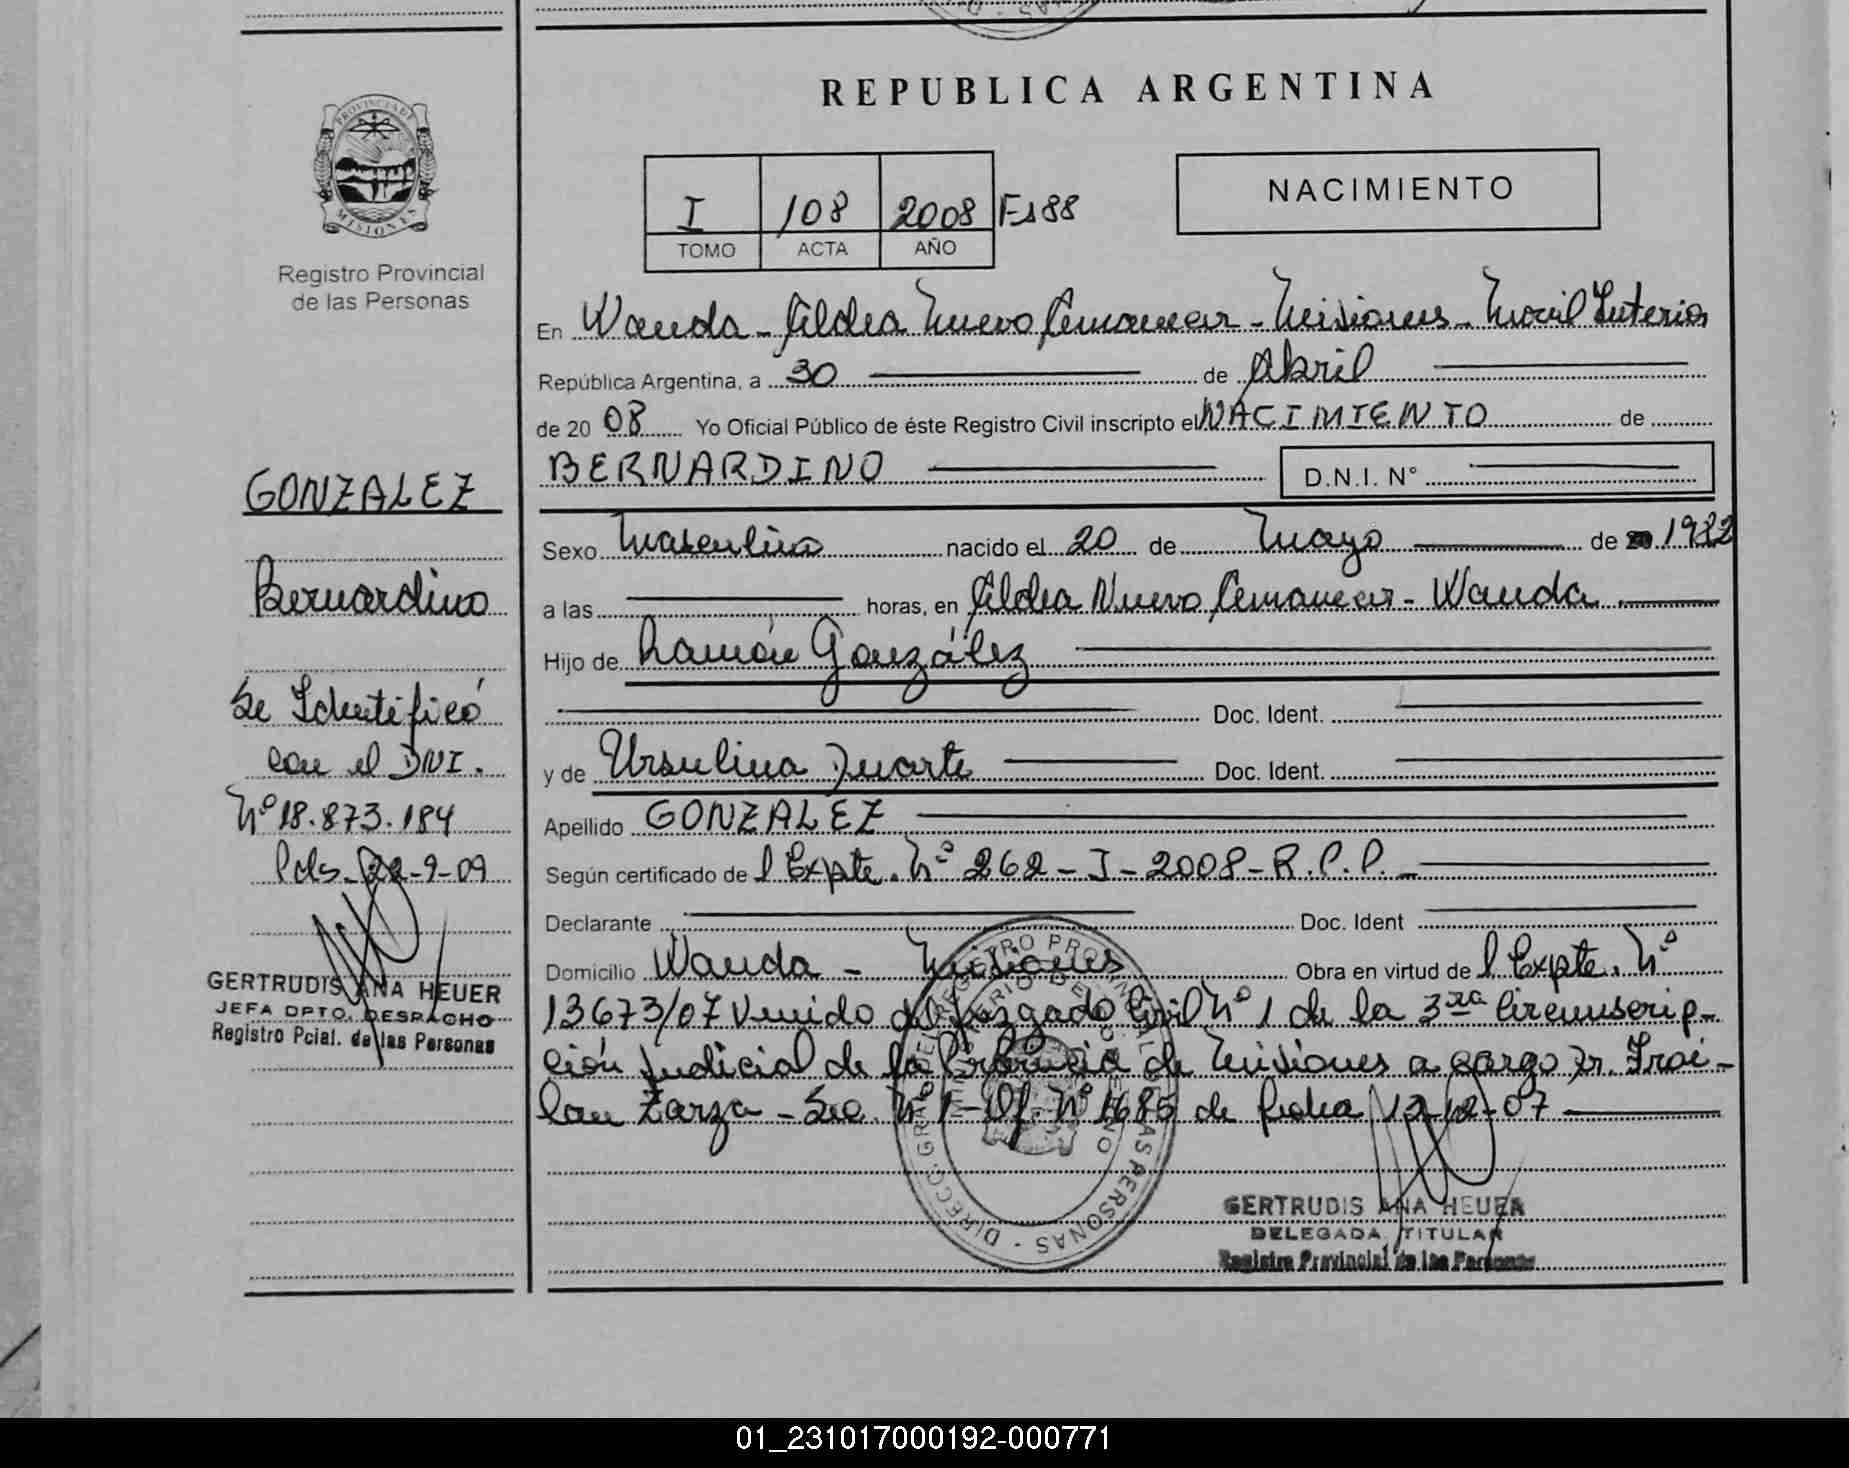 REPUBLICA ARGENTINA
PROVINCIA DE
MISIONES
Registro Provincial
de las Personas
I 108 2008 Fs 88
TOMO ACTA AÑO
NACIMIENTO
En Wanda - Aldea Nuevo Amanecer - Misiones - Movil Interior
República Argentina, a 30 de Abril
de 2008 Yo Oficial Público de éste Registro Civil inscripto el NACIMIENTO de
BERNARDINO D.N.I. N°
Sexo Masculino nacido el 20 de Mayo de 20 1982
a las horas, en Aldea Nuevo Amanecer - Wanda
Hijo de Ramón González
Doc. Ident.
y de Ursulina Duarte Doc. Ident.
Apellido GONZALEZ
Según certificado de l Expte. Nº 262 - I - 2008 - R.P.P. -
Declarante Doc. Ident
Domicilio Wanda - Misiones Obra en virtud de l Expte. Nº
13673/07 Venido del Juzgado Civil Nº 1 de la 3ra Circunscrip-
ción Judicial de la Provincia de Misiones a cargo Dr. Froi-
lan Zarza - Sec. Nº 1 - Of. Nº 1685 de fecha 12-12-07
GERTRUDIS ANA HEUER
DELEGADA TITULAR
Registro Provincial de las Personas
GONZALEZ
Bernardino
Se Identificó
con el DNI.
Nº 18.873.184
Pds. 22-9-09
GERTRUDIS ANA HEUER
JEFA DPTO. DESPACHO
Registro Pcial. de las Personas
01_231017000192-000771